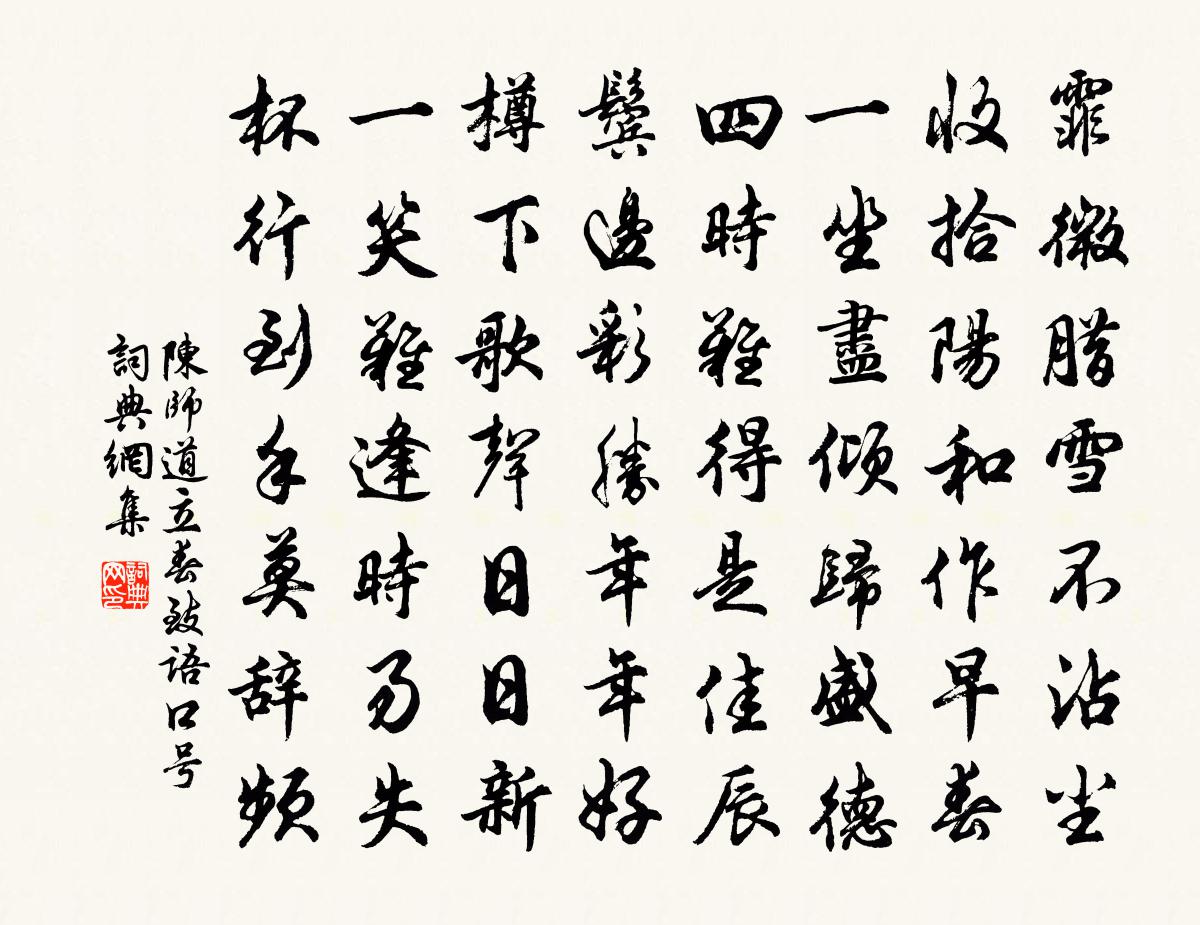 霏微腊雪不沾尘
收拾陽和作早春
一坐盡傾歸盛德
四時難得是佳辰
鬢邊彩勝年年好
樽下歌聲日日新
一笑難逢時易失
杯行到手莫辞頻
陳師道立春致語口号
詞典網集
詞典网印